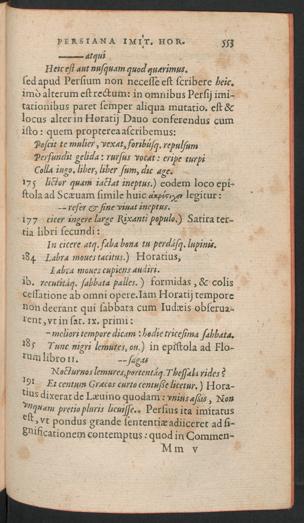 PERSIANA IMIT. HOR. 553
—— atqui
Heic est aut nusquam quod quærimus.
sed apud Persium non necesse est scribere heic.
imò alterum est rectum: in omnibus Persij imi-
tationibus paret semper aliqua mutatio. est &
locus alter in Horatij Dauo conferendus cum
isto: quem propterea ascribemus:
Poscit te mulier, vexat, foribusq. repulsum
Perfundit gelida: rursus vocat: eripe turpi
Colla iugo. liber, liber sum, dic age.
175 lictor quam iactat ineptus.) eodem loco epi-
stola ad Scæuam simile huic legitur:
-- refer & sine viuat ineptus.
177 cicer ingere large Rixanti populo.) Satira ter-
tia libri secundi:
In cicere atq. faba bona tu perdasq. lupinis.
184 Labra moues tacitus.) Horatius,
Labra moues cupiens audiri.
ib. recutitáq. sabbata palles.) formidas, & colis
cessatione ab omni opere. Iam Horatij tempore
non deerant qui sabbata cum Iudæis obserua-
rent, vt in sat. ix. primi:
-- meliori tempore dicam: hodie tricesima sabbata.
185 Tunc nigri lemures, ou.) in epistola ad Flo-
rum libro II. -- sagas
Nocturnos lemures, portentáq. Thessala rides?
191 Et centum Græcos curto centusse licetur.) Hora-
tius dixerat de Læuino quodam: vnius assis, Non
vnquam pretio pluris licuisse.. Persius ita imitatus
est, vt pondus grande sententiæ adiiceret ad si-
gnificationem contemptus: quod in Commen-
M m v